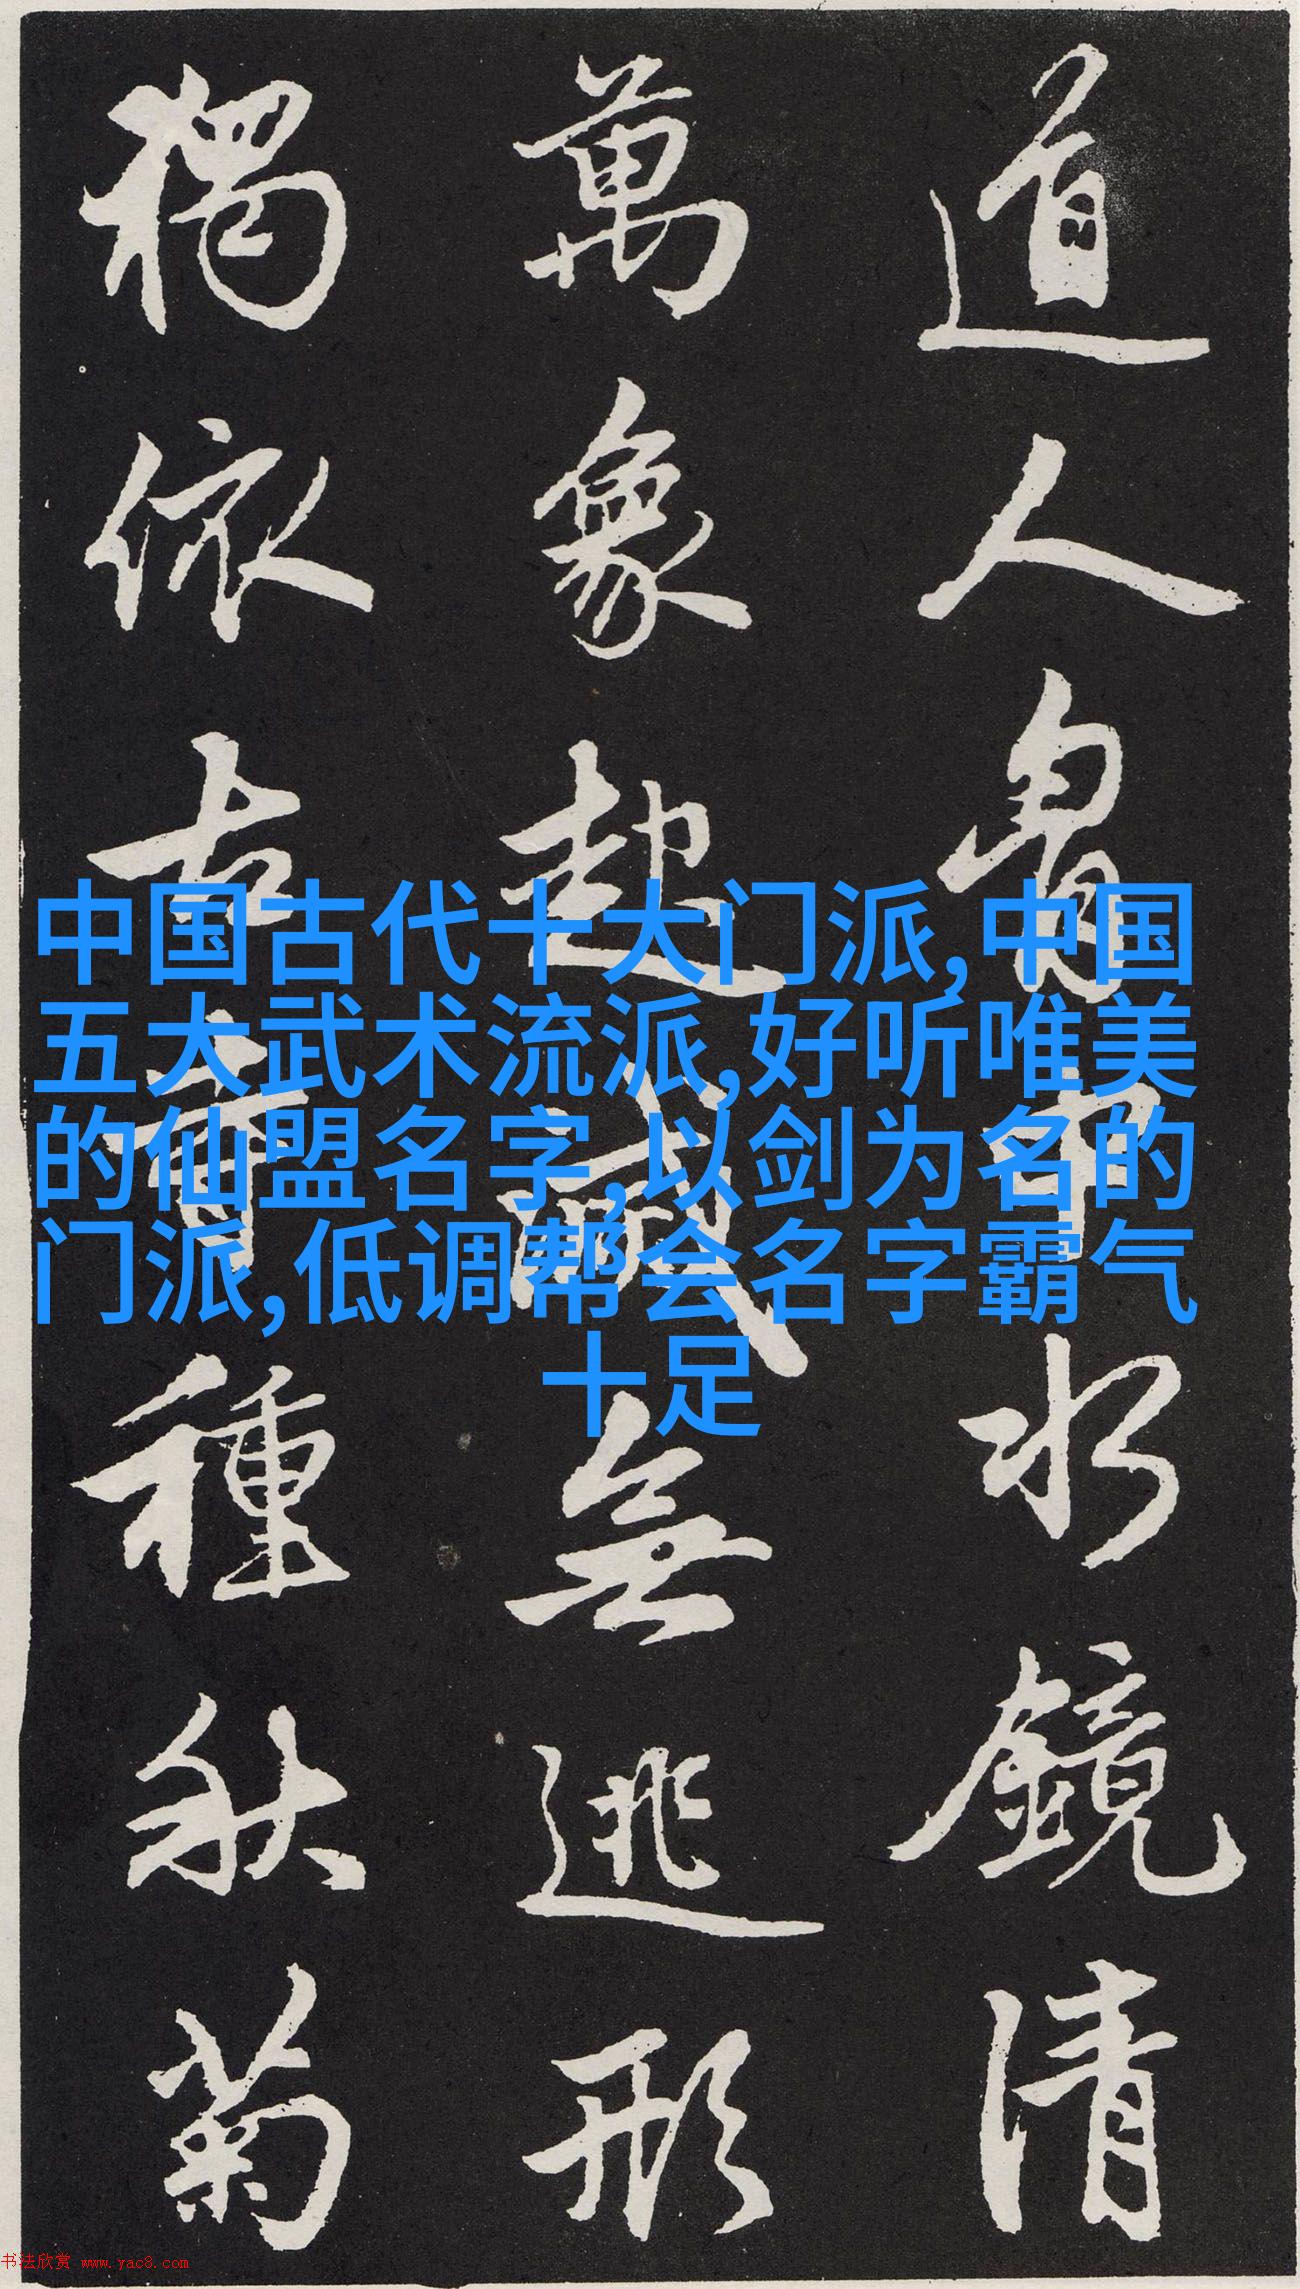 道人胷中水鏡清
萬象起滅無逃形
獨依古寺種秋菊
中国古代十大门派,中国
五大武术流派,好听唯美
的仙盟名字,以剑为名的
门派,低调帮会名字霸气
十足
书法欣赏 www.yac8.com